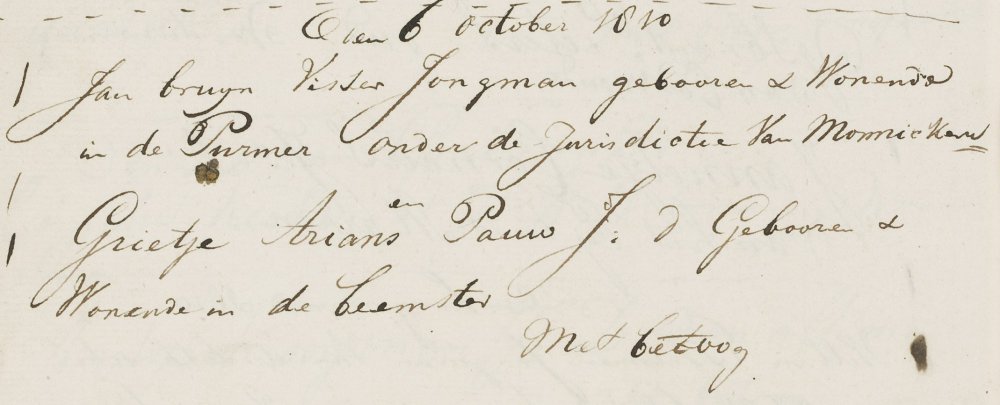 Den 6 october 1810
Jan bruyn Visser Jongman gebooren & Wonende
in de Purmer onder de Jurisdictie Van Monnickend
en
Grietje Arians Pauw J: d Gebooren &
Wonende in de beemster
Met betoog